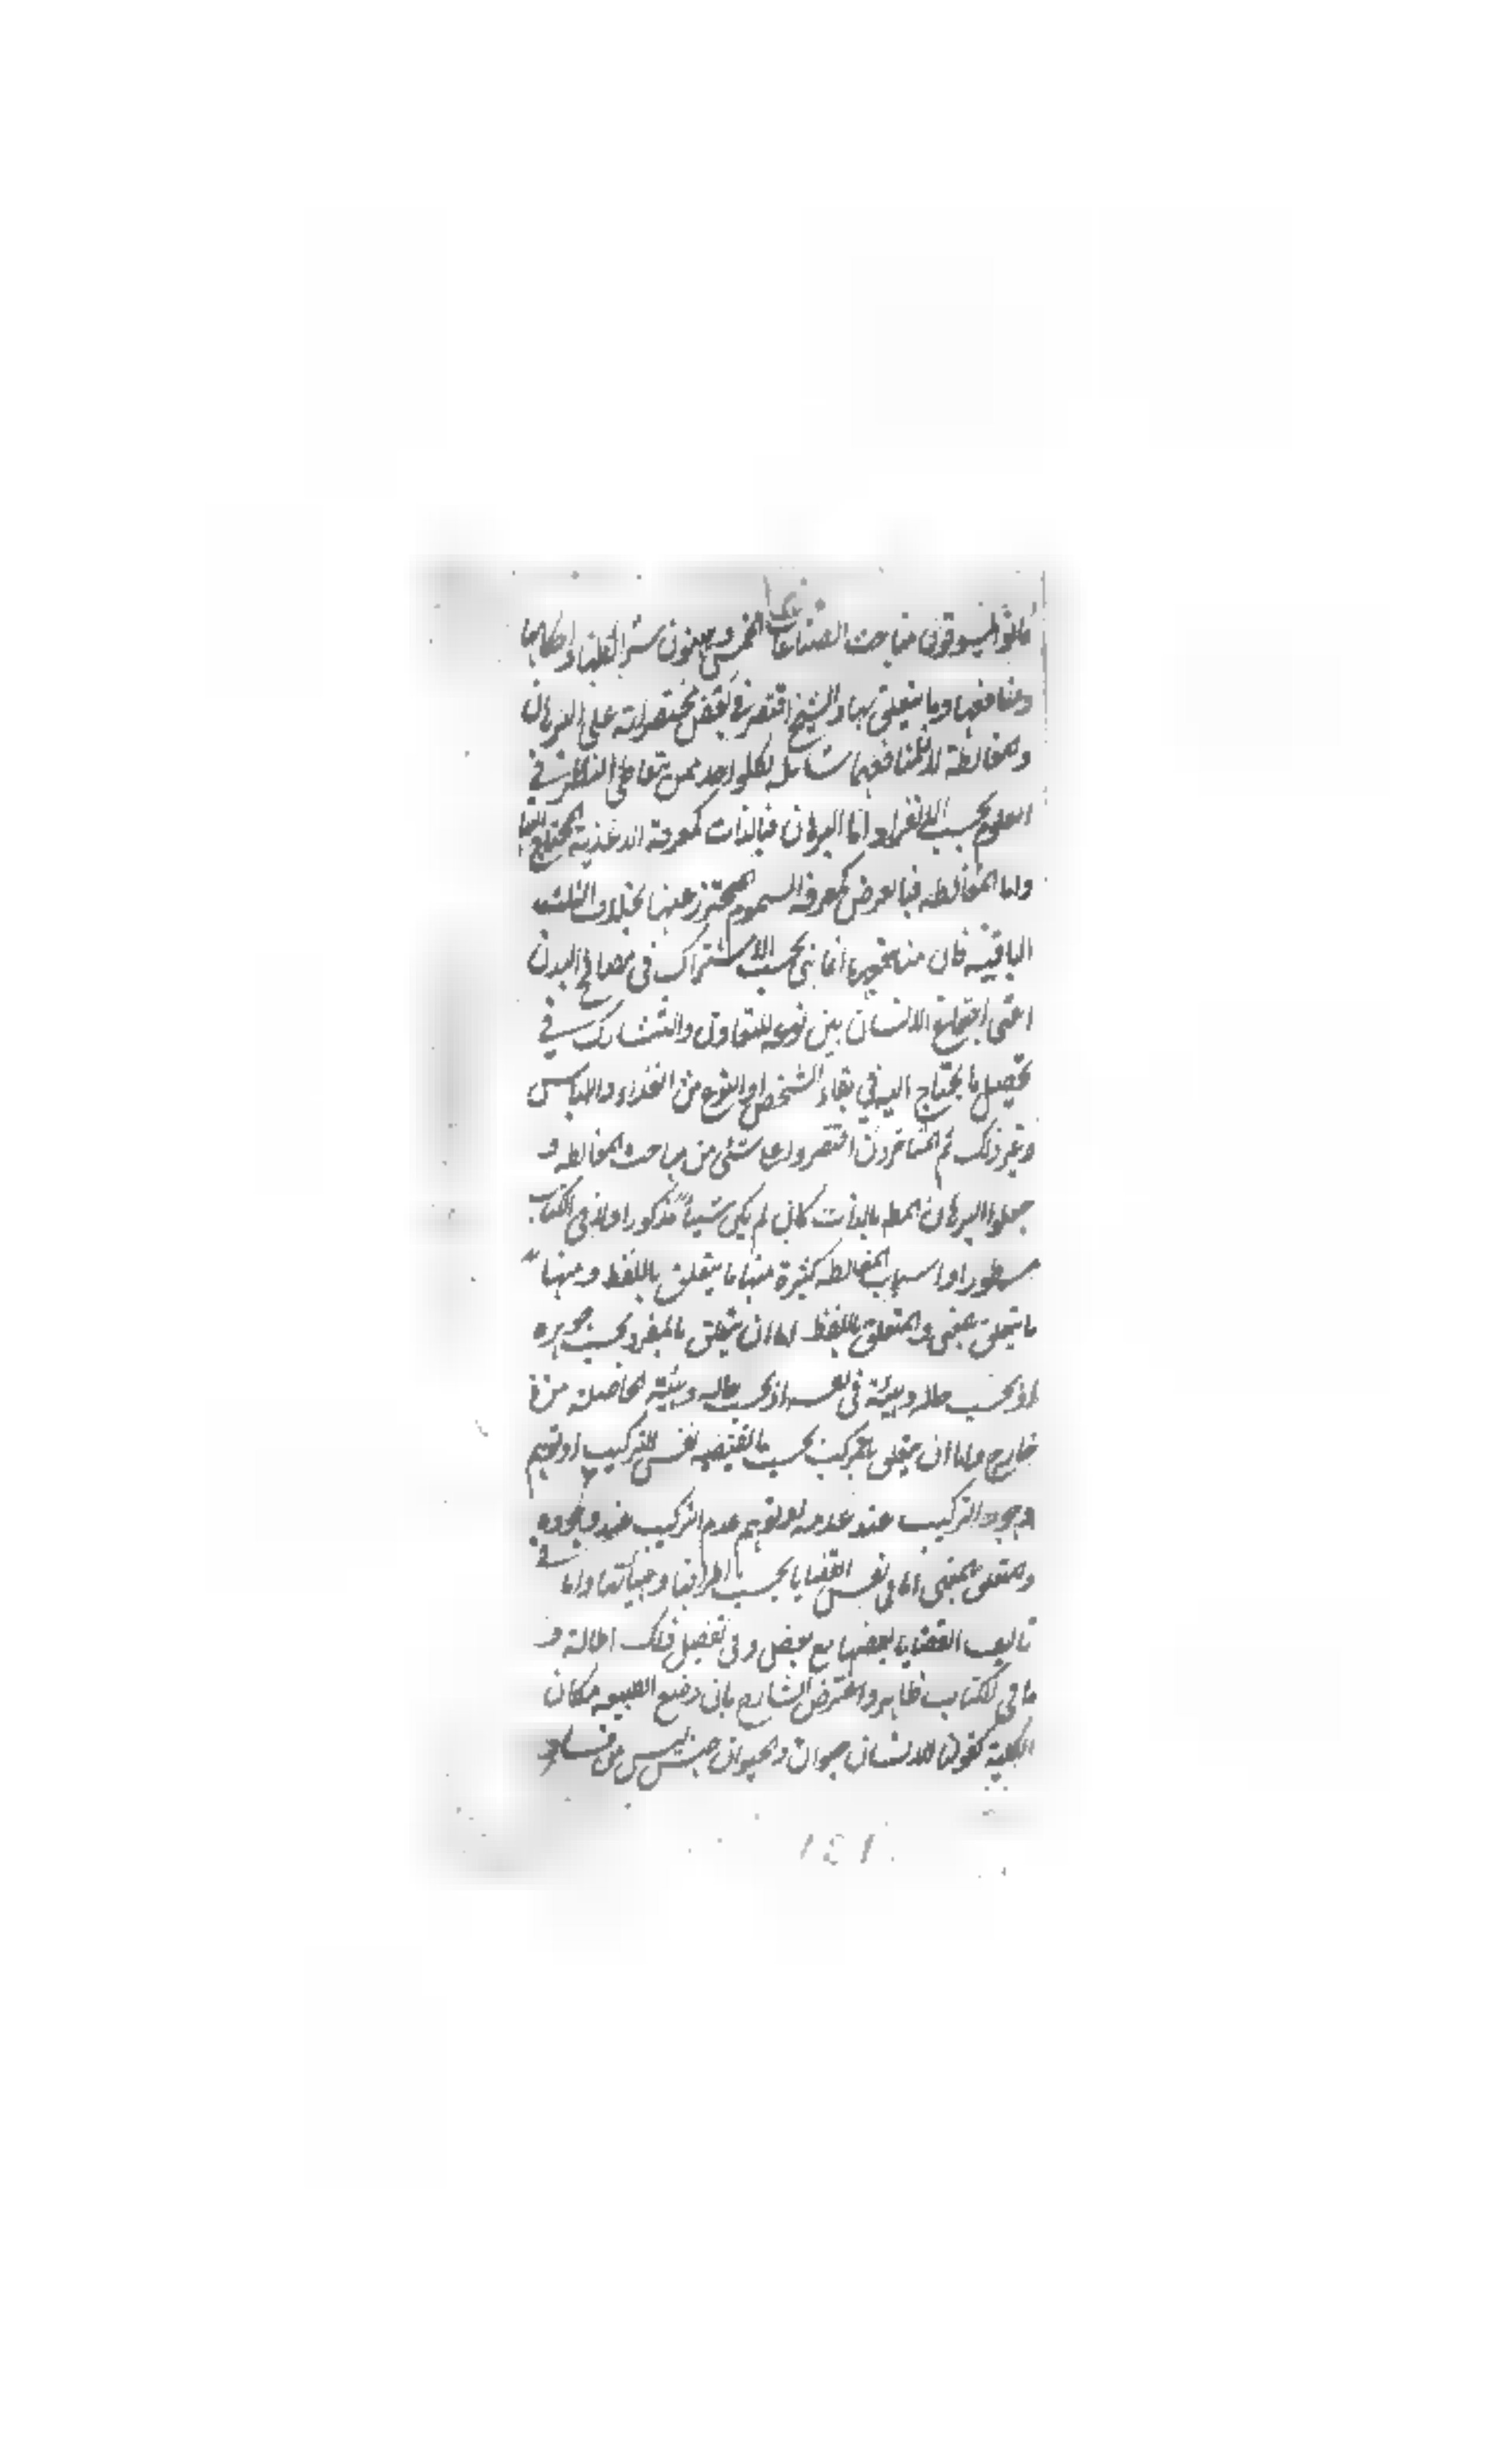 كانوا يسوقون مباحث الصناعات الخمس ويبينون شرائطها واحكامها
ومنافعها وما يتعلق بها والشيخ اقتصر في بعض مختصراته على البرهان
والمغالطة لان منافعهما شاملة لكل واحد ممن يتعاطى النظر في
العلوم بحسب الانفراد اما البرهان فبالذات كمعرفة الاغذية المحتاج اليها
واما المغالطه فبالعرض كمعرفة السموم المحترز عنها بخلاف الثلثه
الباقية فان منافعها انما هي بحسب الاشتراك في مصالح المدن
اعنى اجتماع الانسان بين نوعه للتعاون والتشارك في
تحصيل ما يحتاج اليه في بقاء الشخص او النوع من الغذاء واللباس
وغير ذلك ثم المتاخرون اقتصروا على شئ من مباحث المغالطه و
جعلوا البرهان المط بالذات كان لم يكن شيئا مذكورا ولا في الكتاب
مسطورا واسباب المغالطه كثيرة منها ما يتعلق باللفظ ومنها
ما يتعلق بالمعنى والمتعلق باللفظ اما ان يتعلق بالمفرد بحسب جوهره
او بحسب حاله وهيئة في نفسه او بحسب حاله وهيئة الحاصلة من
خارج واما ان يتعلق بالمركب بحسب ما يقتضيه نفس التركيب او توهم
وجود التركيب عند عدمه او توهم عدم التركيب عند وجوده
والمتعلق بالمعنى اما في نفس القضايا بحسب اطرافها وجهاتها واما في
تاليف القضايا بعضها مع بعض وفي تفصيل ذلك اطالة و
ما في الكتاب ظاهر واعترض الشارح بان وضع الطبيعيه مكان
الكلية كقولنا الانسان حيوان والحيوان جنس ليس من فساد
١٤١